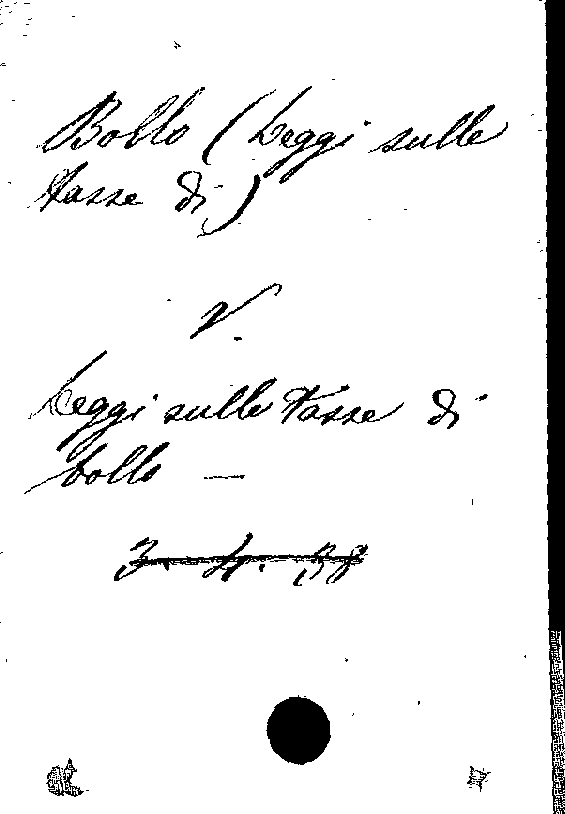 Bollo (Leggi sulle
tasse di)
V.
Leggi sulle tasse di
bollo —
3. 4. 38